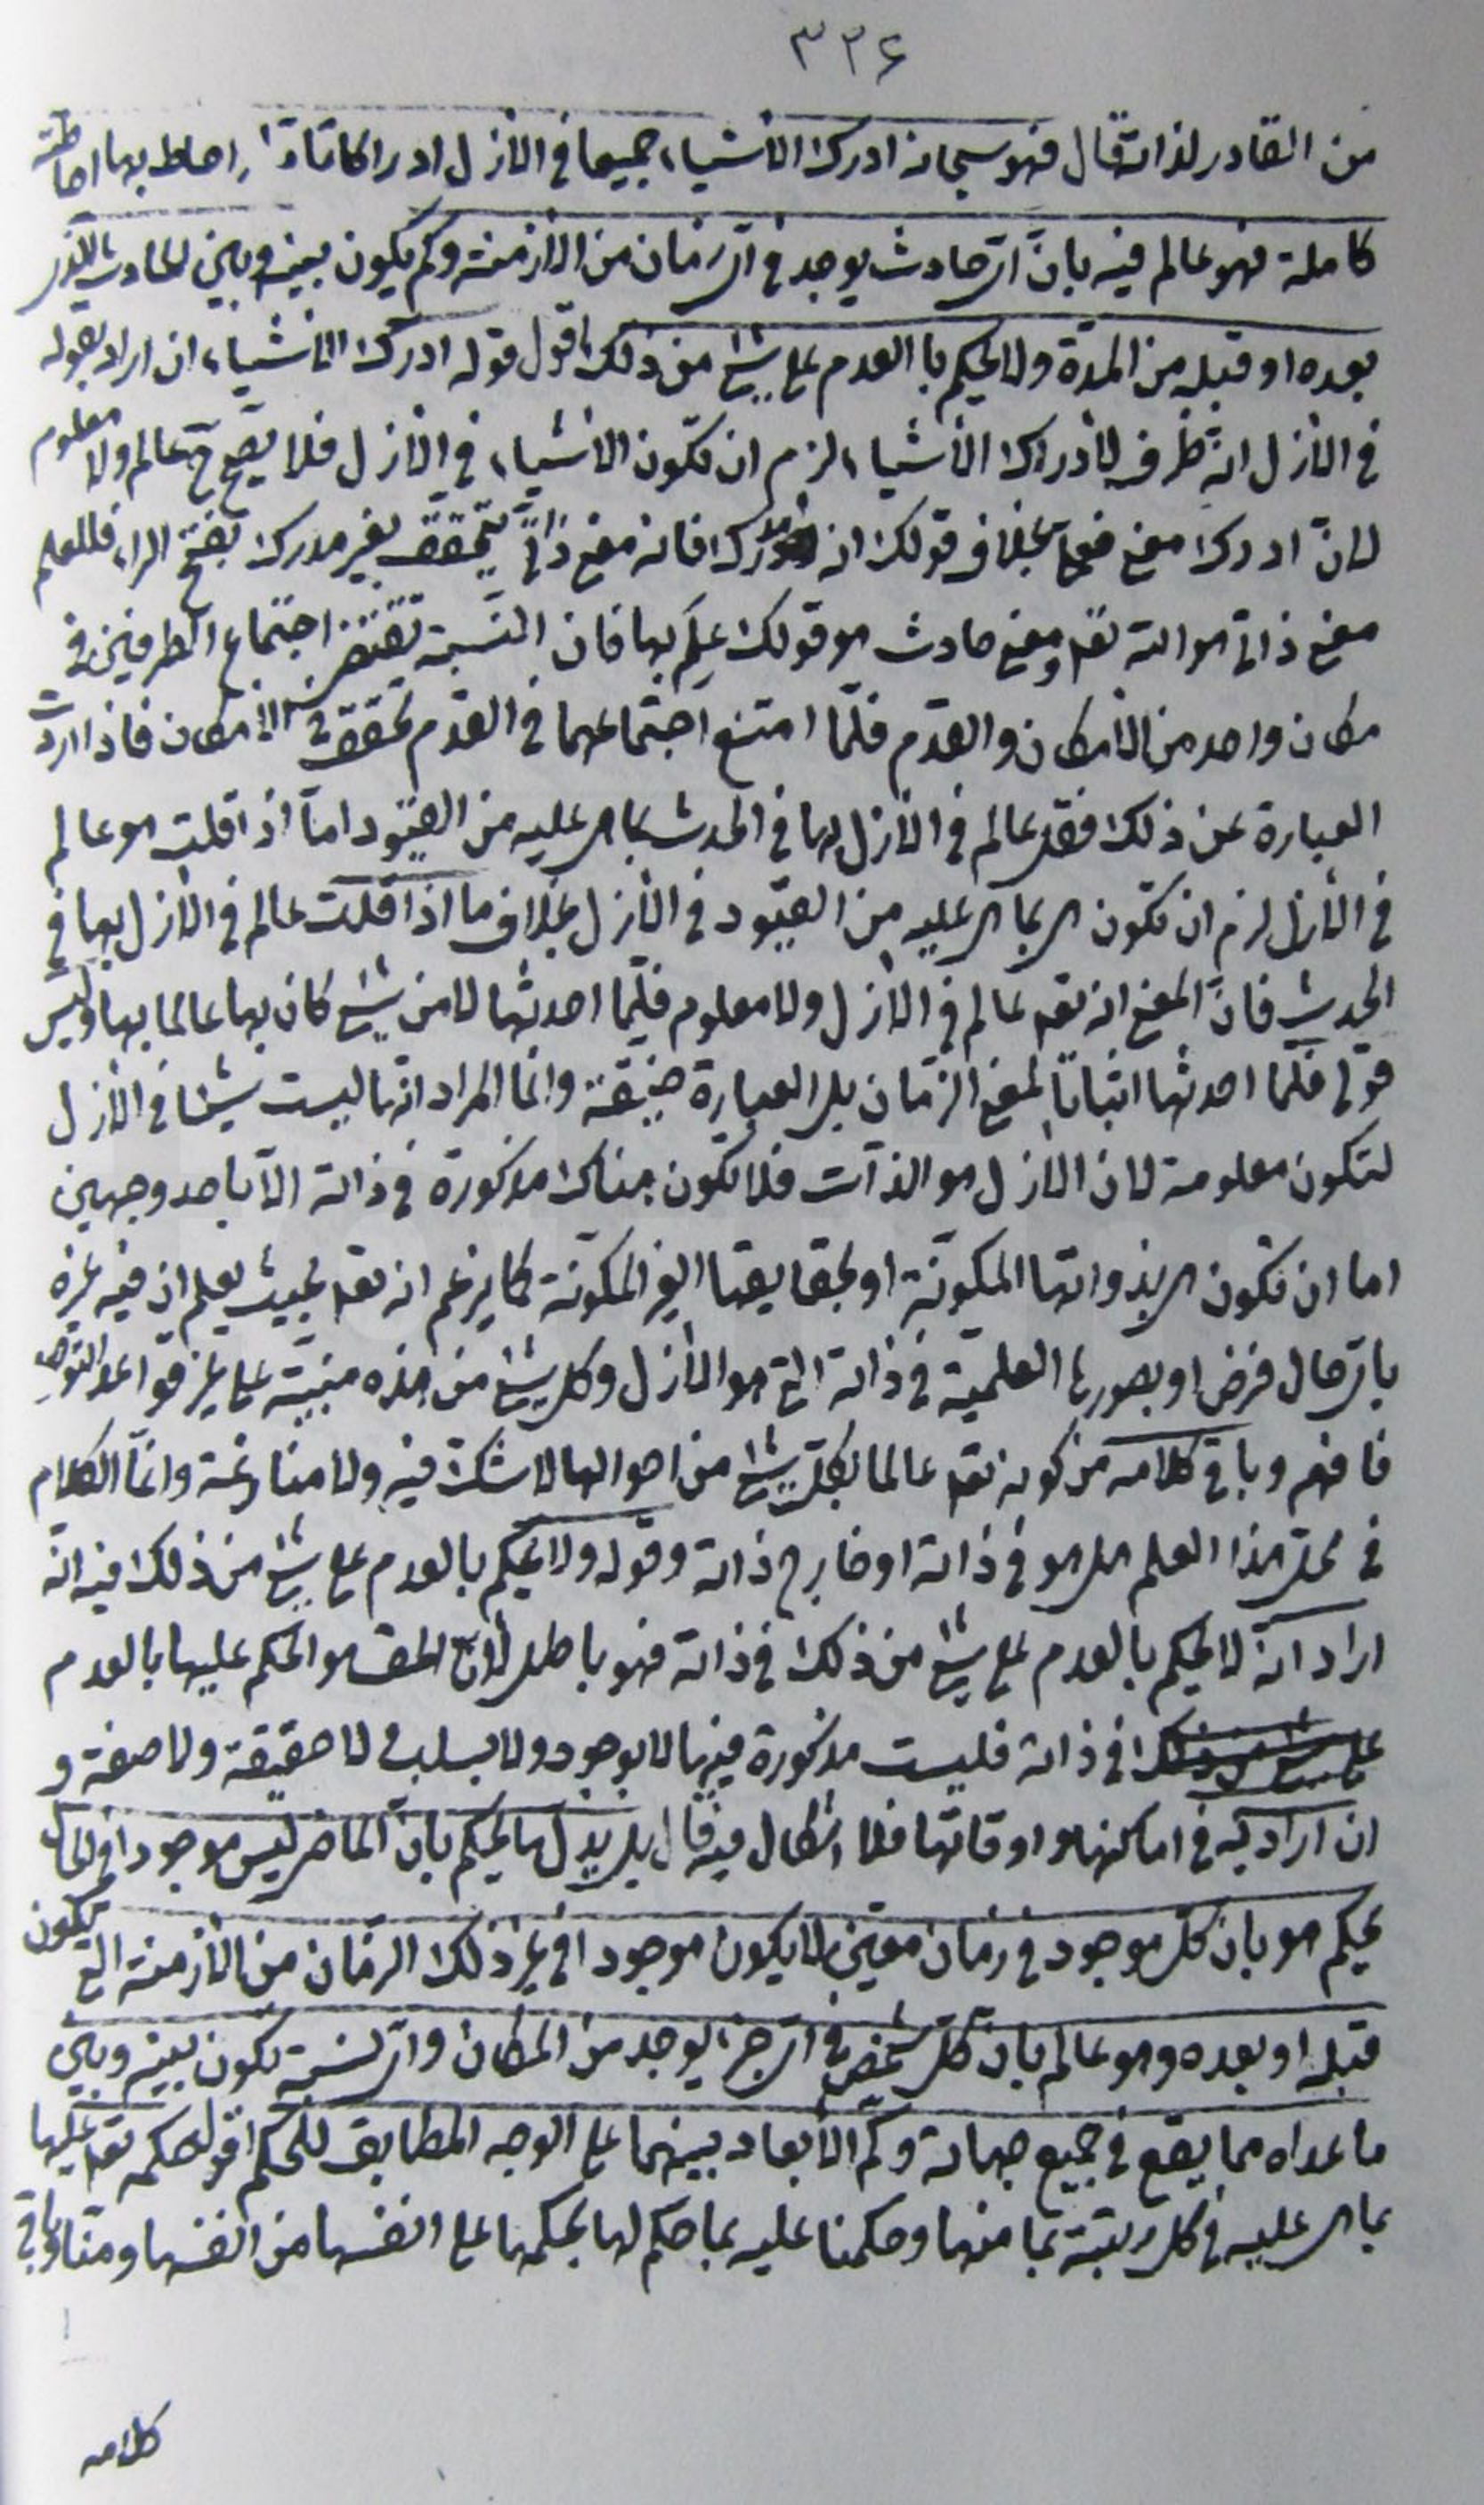 ٣٣۶
من القادر لذاته قال فهو سبحانه ادرك الأشياء جميعا في الأزل ادراكا تامّا و احاط بها احاطة
كاملة فهو عالم فيه بانّ ايّ حادث يوجد في ايّ زمان من الأزمنة وكم يكون بينه وبين الحادث الذي
بعده او قبله من المدّة ولا يحكم با العدم على شئ من ذلك اقول قوله ادرك الأشياء ان اراد بقوله
في الأزل انّه ظرف لأدراك الأشياء لزم ان تكون الأشياء في الأزل فلا يصحّ ح عالم ولا معلوم
لانّ ادرك معنى فعليّ بخلاف قولك انه مدرك فانه معنى ذاتيّ يتحقق بغير مدرك بفتح الراء فللعلم
معنى ذاتي هو الله تعه ومعنى حادث هو قولك علم بها فان النسبة تقتضي اجتماع الطرفين في
مكان واحد من الأمكان والقدم فلمّا امتنع اجتماعهما في القدم تحقق في الأمكان فاذا اردت
العبارة عن ذلك فقل عالم في الأزل بها في الحدث بما هي عليه من القيود امّا اذا قلت هو عالم
في الأزل لزم ان تكون هي بما هي عليه من القيود في الأزل بخلاف ما اذا قلت عالم في الأزل بها في
الحدث فانّ المعنى انه تعه عالم في الأزل ولا معلوم فلمّا احدثها لا من شئ كان بها عالما بها وليس
قولي فلمّا احدثها اثباتا لمعنى الزمان بل العبارة ضيّقة وانما المراد انّها ليست شيئا في الأزل
لتكون معلومة لان الأزل هو الذات فلا تكون هناك مذكورة في ذاته الّا باحد وجهين
اما ان تكون هي بذواتها المكونّة او بحقايقها الغير المكونّة كما يزعم انه تعه بحيث يعلم ان فيه غيره
بايّ حال فرض او بصورها العلميّة في ذاته التي هو الأزل وكل شئ من هذه مبنيّة على غير قواعد التوحيد
فافهم وباقي كلامه من كونه تعه عالما بكلّ شئ من احوالها لا شكّ فيه ولا منازعة وانمّا الكلام
في محلّ هذا العلم هل هو في ذاته او خارج ذاته وقوله ولا يحكم بالعدم على شئ من ذلك فيه انّه
اراد انّه لا يحكم بالعدم على شئ من ذلك في ذاته فهو باطل لأنّ الحق هو الحكم عليها بالعدم
في ذاته فليست مذكورة فيها لا بوجود ولا بسلب لا حقيقة ولا صفة و
ان اراد به في اماكنها و اوقاتها فلا اشكال فيه قال بل بدل ما يحكم بانّ الماضي ليس موجودا في الحال
يحكم هو بان كلّ موجود في زمان معيّن لا يكون موجودا في غير ذلك الزمان من الأزمنة التي تكون
قبله او بعده وهو عالم بانّ كلّ شخص في ايّ جزء يوجد من المكان وايّ نسبة تكون بينه وبين
ما عداه مما يقع في جميع جهاته وكم الأبعاد بينهما على الوجه المطابق للحكم اقول حكمه تعه عليها
بما هي عليه في كلّ رتبة بما منها وحكمنا عليه بما حكم لها بحكمها على انفسها من انفسها ومنّا وباقي
كلامه